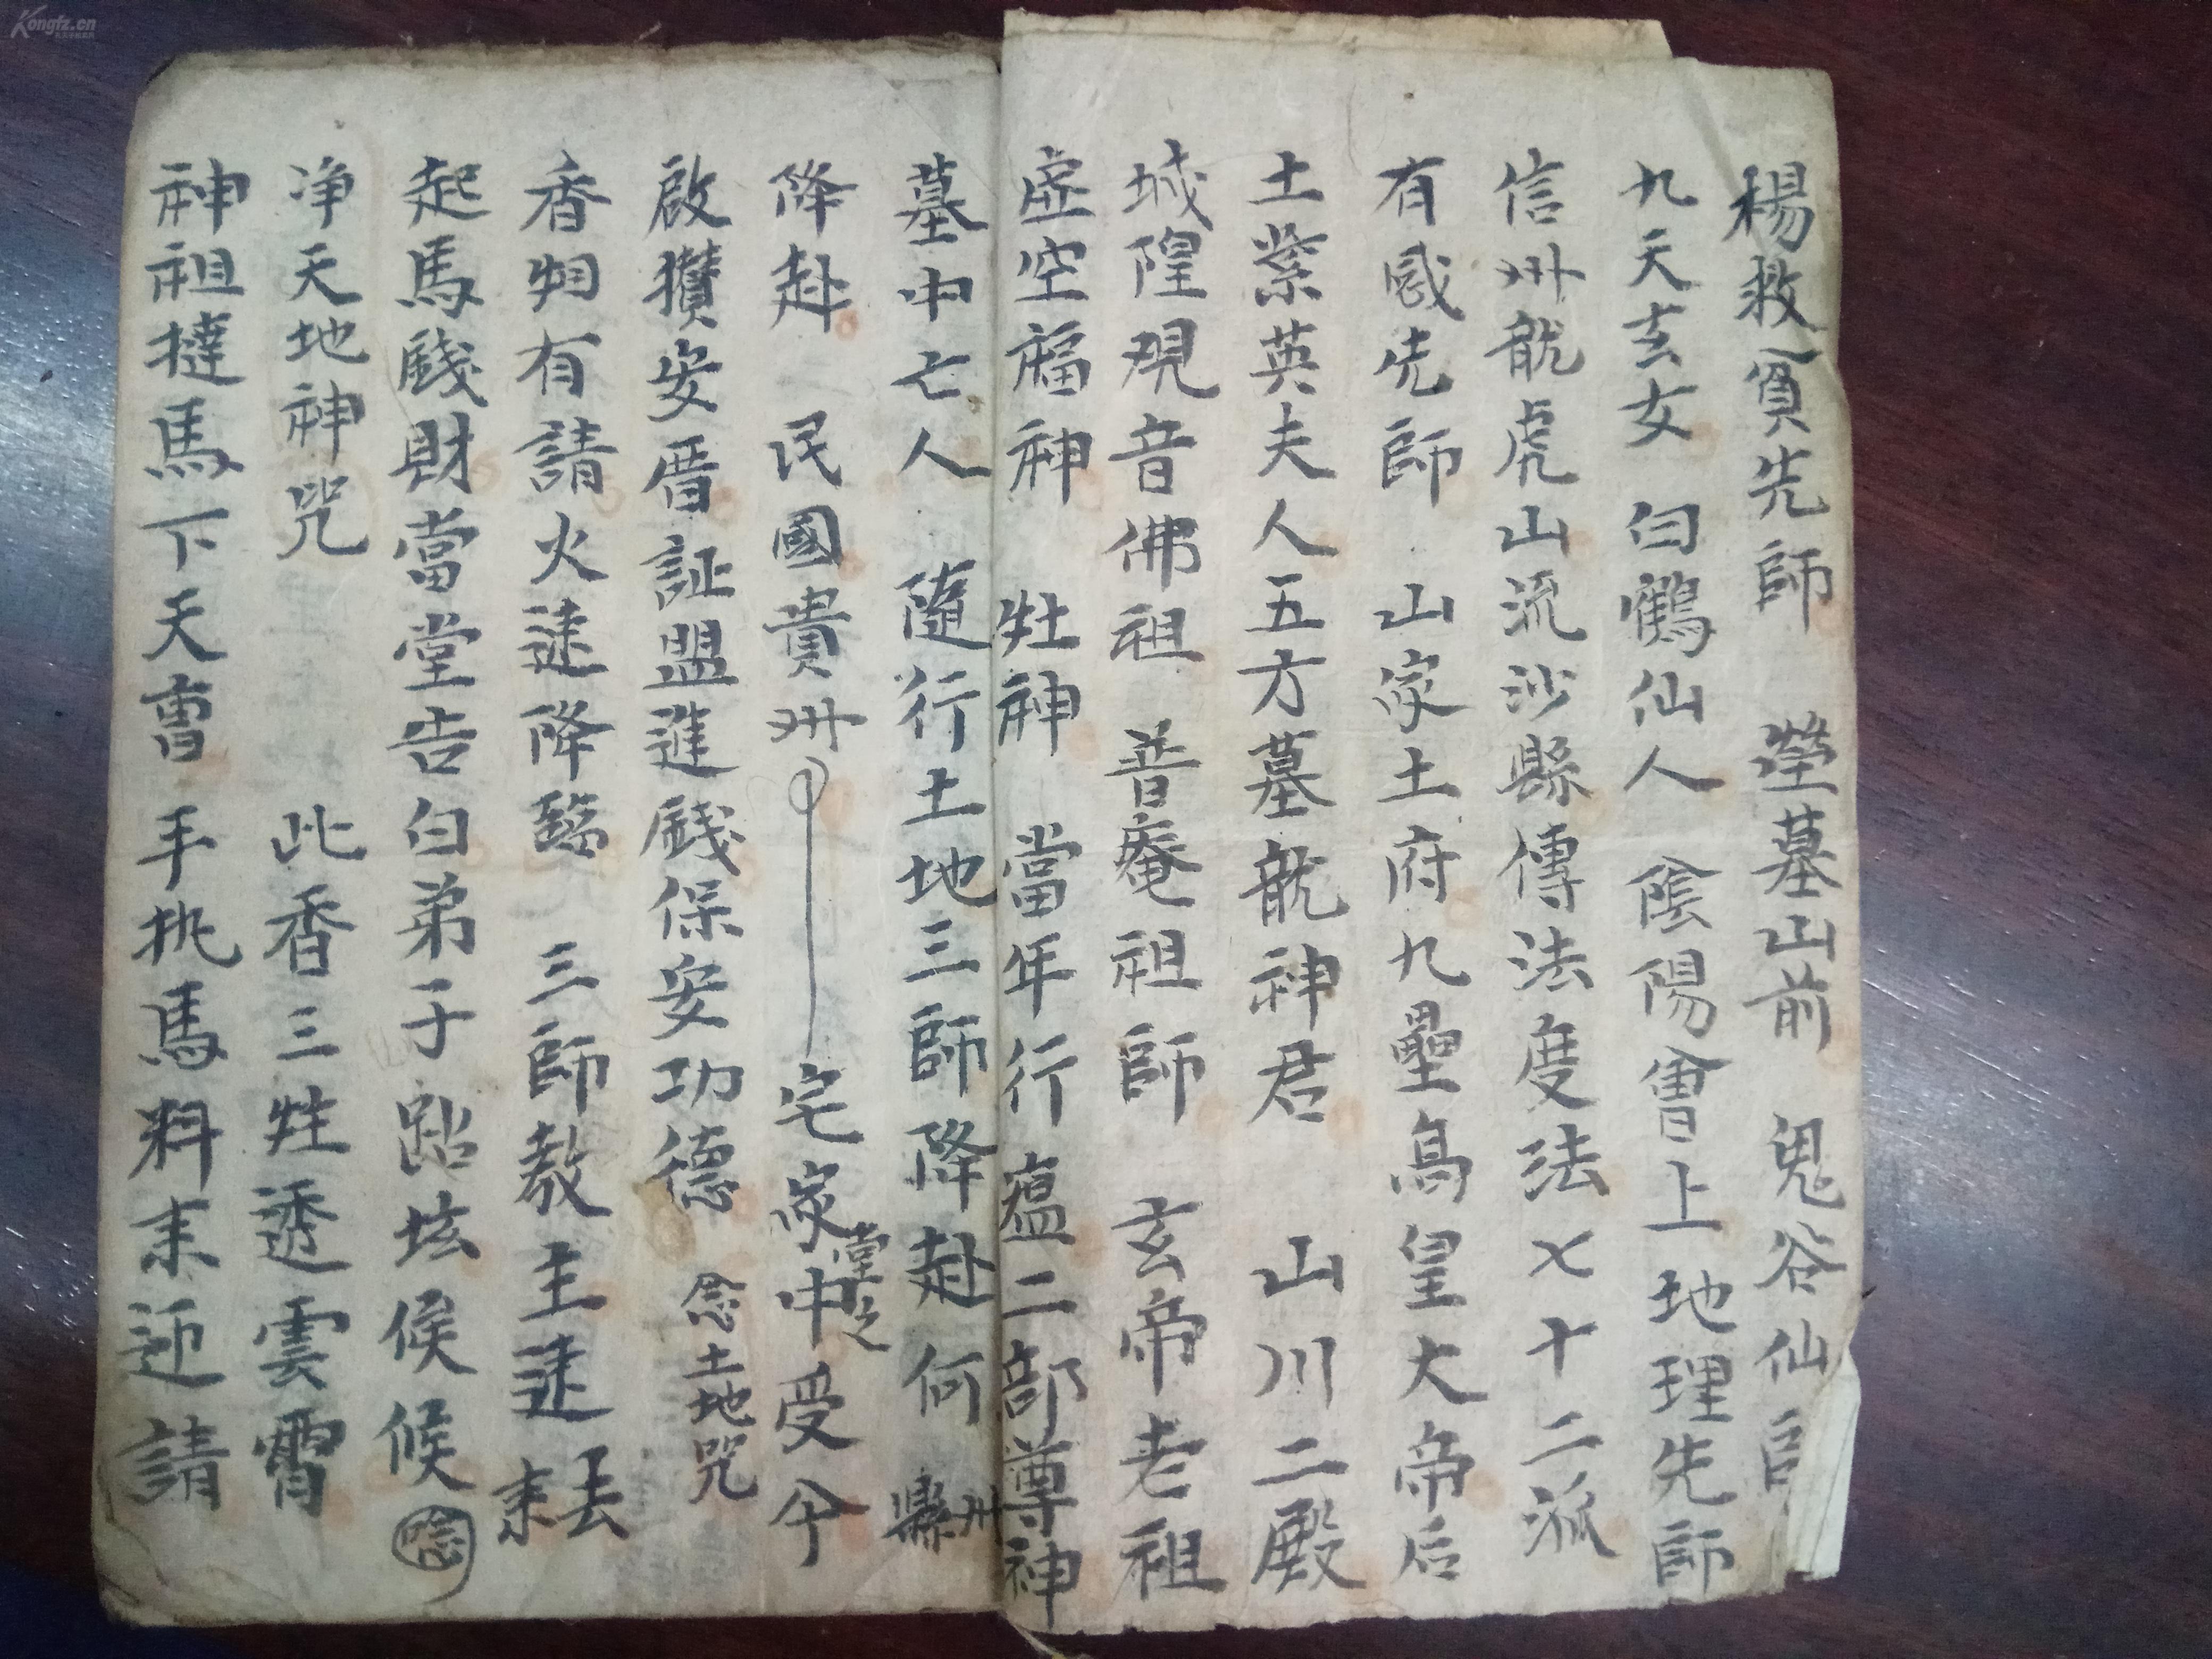 楊救貧先師 瑩墓山前 鬼谷仙師
九天玄女 白鶴仙人 陰陽會上地理先師
信州龍虎山流沙縣傳法度法七十二派
有感先師 山家土府九壘高皇大帝后
土紫英夫人五方墓龍神君 山川二殿
城隍現音佛祖 普庵祖師 玄帝老祖
虛空福神 灶神 當年行瘟二部尊神
墓中亡人 隨行土地三師降赴何州縣
降赴 民國貴州 宅家中堂之受今
啟攢安厝証盟進錢保安功德 念土地咒
香烟有請火速降臨 三師教主速去來
起馬錢財當堂告白弟子跕垓候候 唸
净天地神咒 此香三炷透雲霄
神祖撻馬下天曹手执馬料來迎請
Kongfz.cn